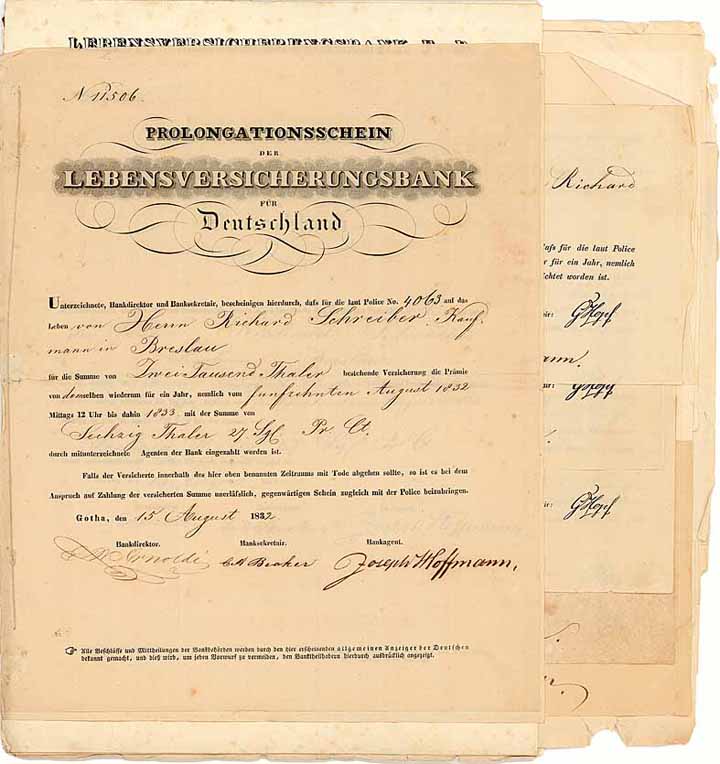 LEBENSVERSICHERUNGSBANK
N 11506.
PROLONGATIONSSCHEIN
DER
LEBENSVERSICHERUNGSBANK
FÜR
Deutschland
Unterzeichnete, Bankdirektor und Banksekretair, bescheinigen hierdurch, dafs für die laut Police No. 4063 auf das
Leben von Herrn Richard Schreiber, Kauf-
mann in Breslau
für die Summe von Zwei Tausend Thaler bestehende Versicherung die Prämie
von demselben wiederum für ein Jahr, nemlich vom funfzehnten August 1832
Mittags 12 Uhr bis dahin 1833. mit der Summe von
Sechzig Thaler 27 Sgl. Pr. Ct.
durch mitunterzeichnete Agenten der Bank eingezahlt worden ist.
Falls der Versicherte innerhalb des hier oben benannten Zeitraums mit Tode abgehen sollte, so ist es bei dem
Anspruch auf Zahlung der versicherten Summe unerläfslich, gegenwärtigen Schein zugleich mit der Police beizubringen.
Gotha, den 15 August 1832
Bankdirektor. Banksekretair. Bankagent.
Arnoldi Joseph Hoffmann,
☞ Alle Beschlüsse und Mittheilungen der Bankbehörden werden durch den hier erscheinenden allgemeinen Anzeiger der Deutschen
bekannt gemacht, und dieß wird, um jeden Vorwurf zu vermeiden, den Banktheilhabern hierdurch ausdrücklich angezeigt.
Richard
dafs für die laut Police
für ein Jahr, nemlich
worden ist.